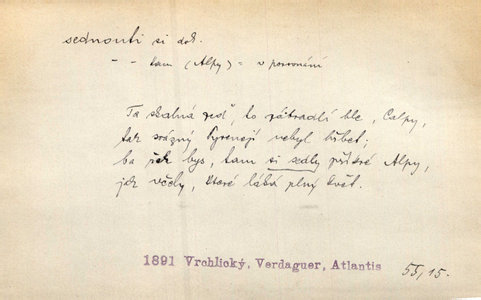 sednouti si dok.
- - tam (Alpy) = v porovnání
Ta skalná zeď, to zábradlí hle, Calpy,
tak srázný Pyrenejí nebyl hřbet;
ba řek bys, tam si sedly příkré Alpy,
jak včely, které láká plný květ.
1891 Vrchlický, Verdaguer, Atlantis 55/15.